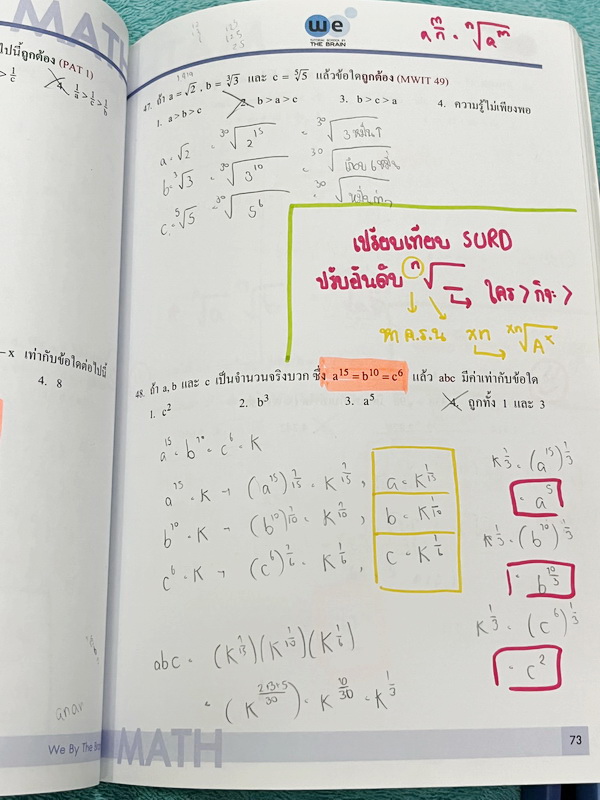 MATH
we
TUTORIAL SCHOOL BY
THE BRAIN
a^(m/n) = ⁿ√a^m
ไปนี้ถูกต้อง (PAT 1)
> 1/c
4. 1/a > 1/c > 1/b
47. ถ้า a = √2 , b = ³√3 และ c = ⁵√5 แล้วข้อใดถูกต้อง (MWIT 49)
1. a > b > c
2. b > a > c
3. b > c > a
4. ความรู้ไม่เพียงพอ
a = √2 = ³⁰√2¹⁵ = ³⁰√3 หมื่น
b = ³√3 = ³⁰√3¹⁰ = ³⁰√เกือบ 6 หมื่น
c = ⁵√5 = ³⁰√5⁶ = ³⁰√หมื่นกว่า
เปรียบเทียบ SURD
ปรับอันดับ ⁿ√ → ใคร > ก็จะ >
ห ค.ร.น xn → ˣⁿ√Aˣ
−x เท่ากับข้อใดต่อไปนี้
4. 8
48. ถ้า a, b และ c เป็นจำนวนจริงบวก ซึ่ง a¹⁵ = b¹⁰ = c⁶ แล้ว abc มีค่าเท่ากับข้อใด
1. c²
2. b³
3. a⁵
4. ถูกทั้ง 1 และ 3
a¹⁵ = b¹⁰ = c⁶ = K
a¹⁵ = K → (a¹⁵)^(1/15) = K^(1/15) , a = K^(1/15)
b¹⁰ = K → (b¹⁰)^(1/10) = K^(1/10) , b = K^(1/10)
c⁶ = K → (c⁶)^(1/6) = K^(1/6) , c = K^(1/6)
K^(1/3) = (a¹⁵)^(1/3)
= a⁵
K^(1/3) = (b¹⁰)^(1/3)
= b^(10/3)
K^(1/3) = (c⁶)^(1/3)
= c²
abc = (K^(1/15))(K^(1/10))(K^(1/6))
= (K^((2+3+5)/30)) = K^(10/30) = K^(1/3)
We By The
MATH
73